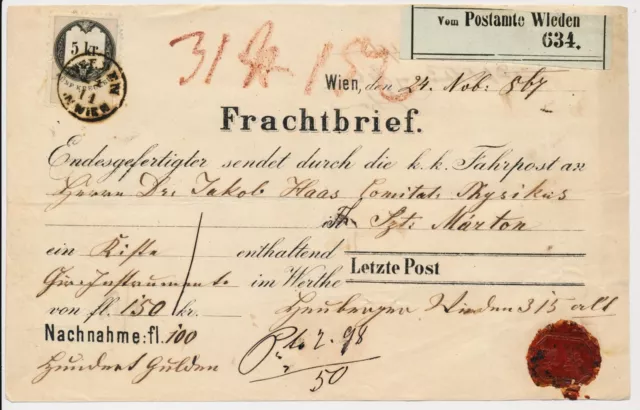 Vom Postamte Wieden
634.
5 kr.
WIEDEN
IN WIEN
31 150
Wien, den 24 Nob: 867
Frachtbrief.
Endesgefertigter sendet durch die k. k. Fahrpost an
Herrn Dr: Jakob Haas Comitats Physikus
in Szt: Márton
ein Kiste enthaltend
Letzte Post
Instrumente im Werthe
von fl. 150 kr. Heuberger Wieden 315 alt
Nachnahme: fl. 100
Hundert Gulden
50